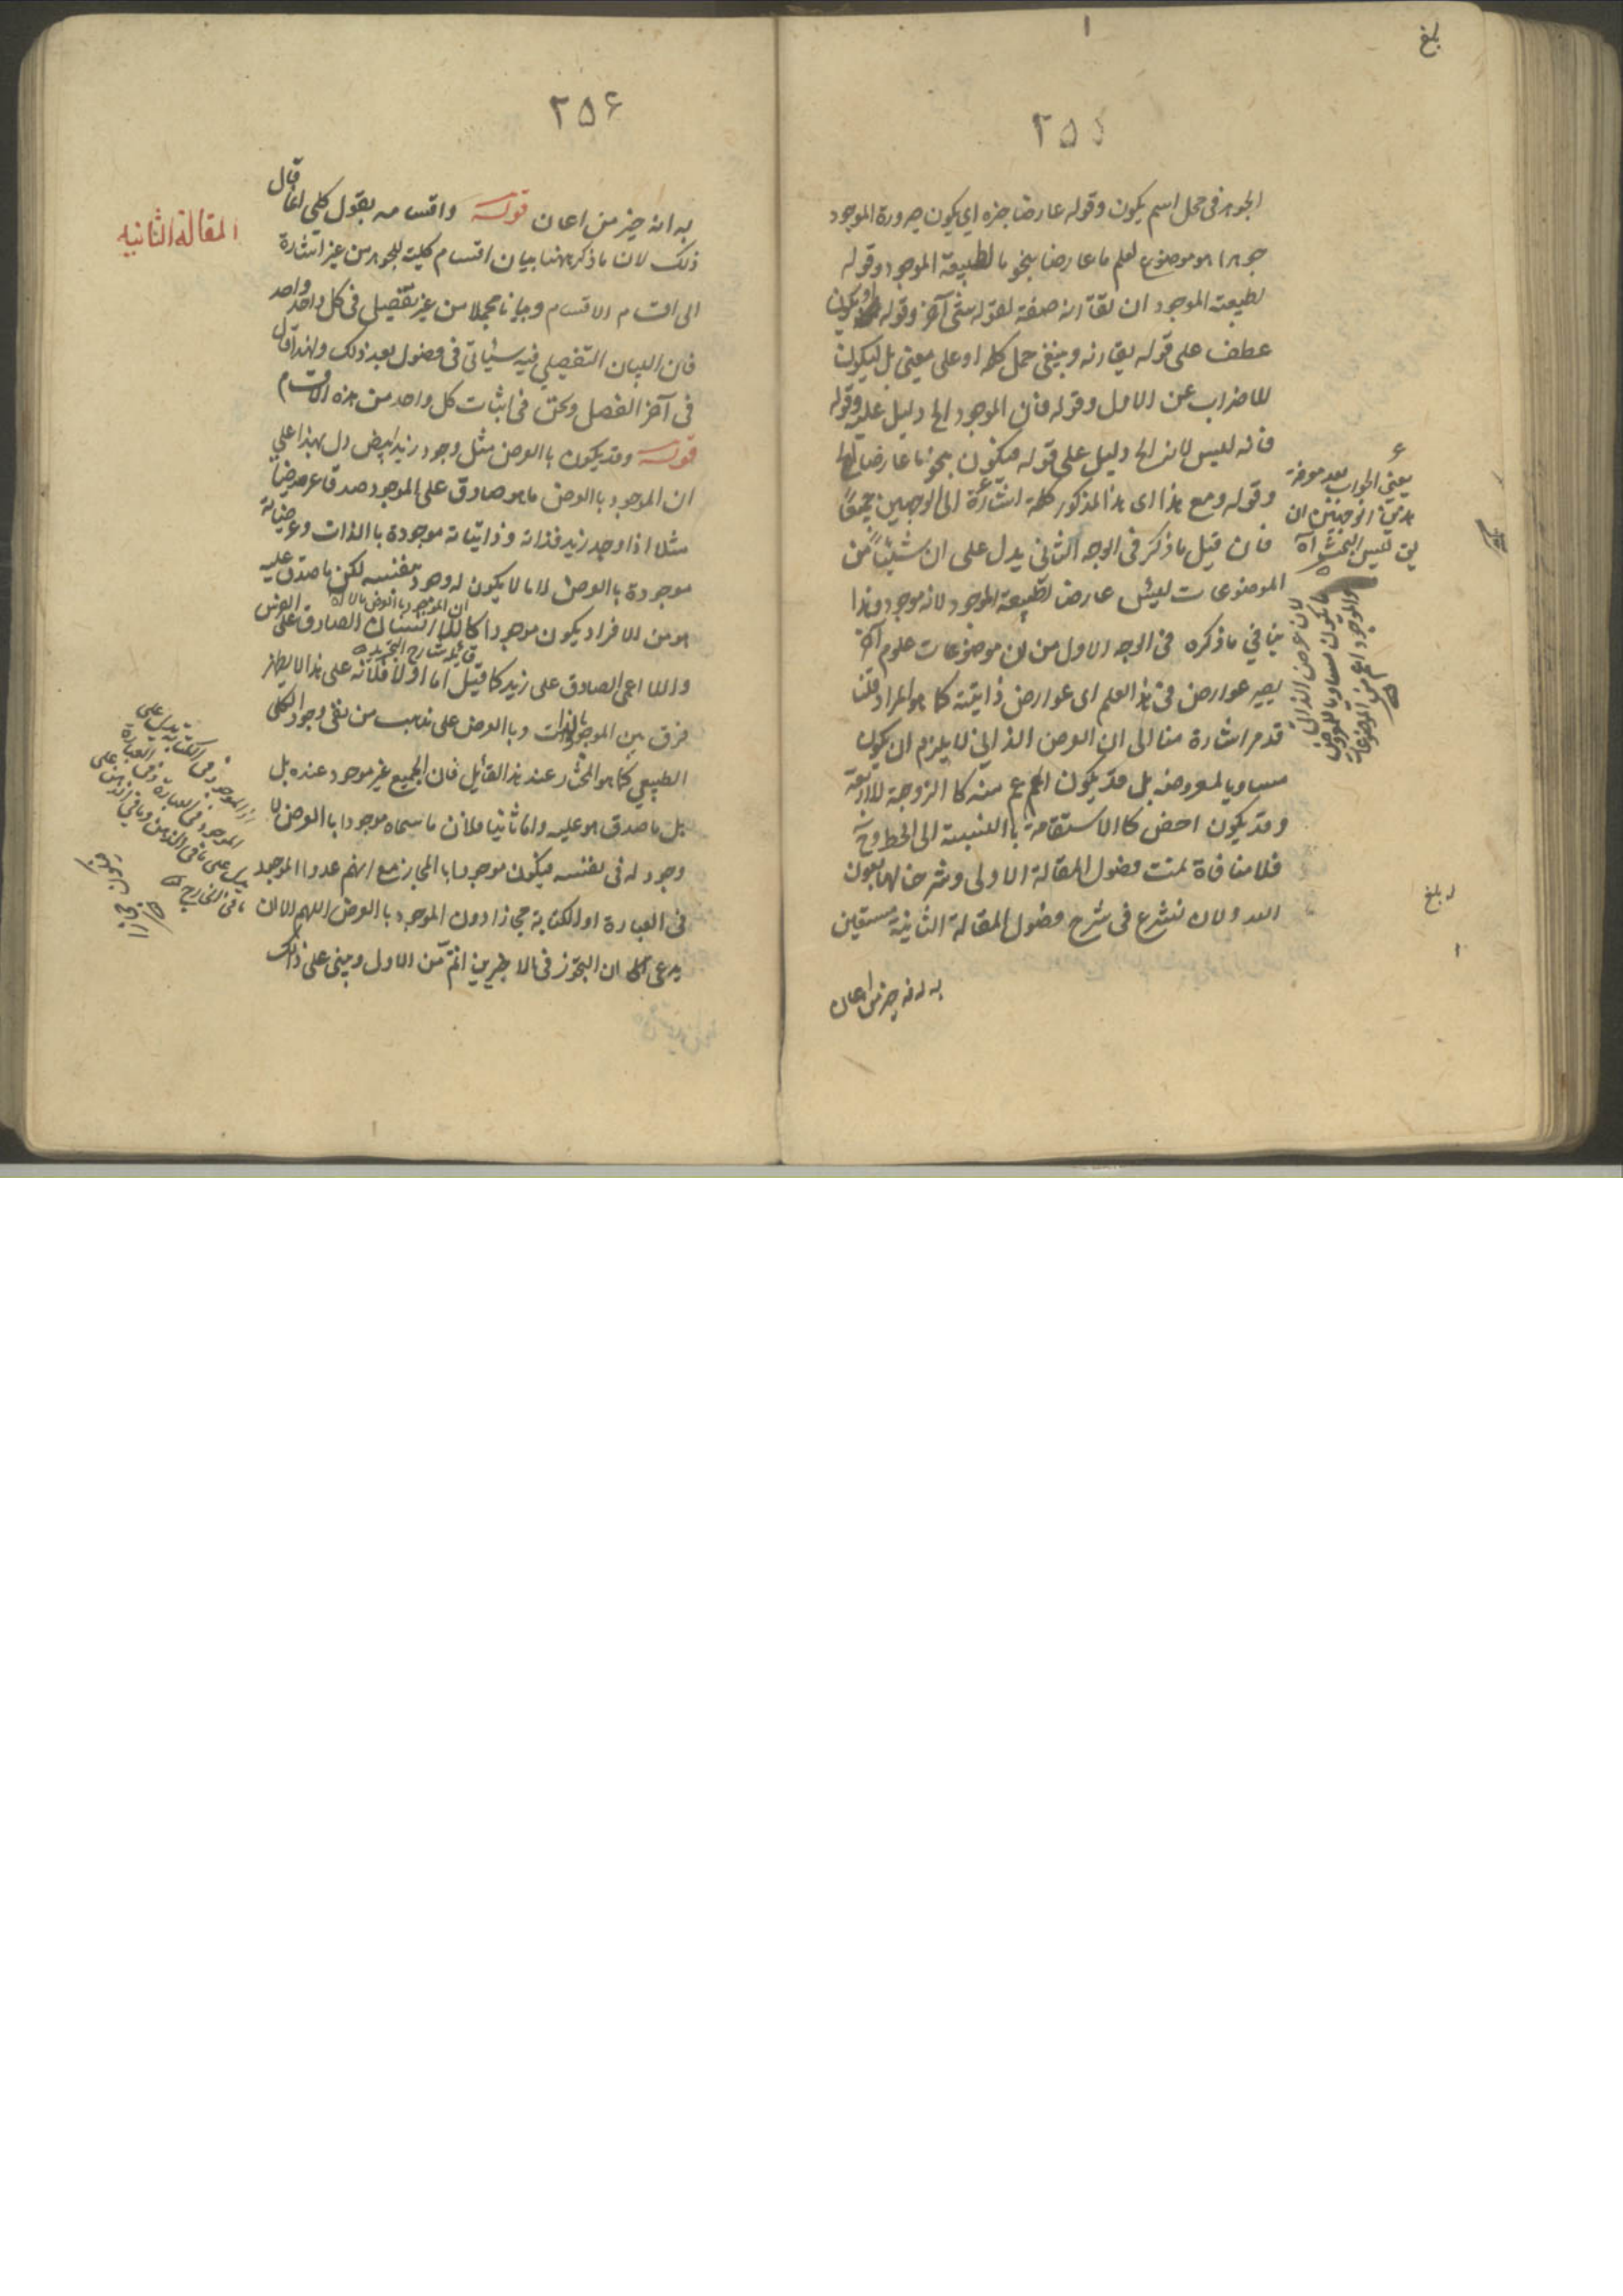 بلغ
٢٥٥
الجوهر فى محل اسم يكون وقوله عارضا خبره اي يكون صيرورة الموجود
جوهرا هو موضوع لعلم ما عارضا بنحو ما لطبيعة الموجود وقوله
لطبيعة الموجود ان تقارنه صفة لقوله شئ آخر وقوله او يكون
عطف على قوله يقارنه وينبغى حمل كلمة او على معنى بل ليكون
للاضراب عن الاول وقوله فان الموجود الخ دليل عليه وقوله
فانه ليس لانه الخ دليل على قوله فيكون بنحو ما عارضا لها
وقوله ومع هذا اى هذا المذكور كلمة اشارة الى الوجهين جميعًا
فان قيل ما ذكر فى الوجه الثانى يدل على ان شيئًا من
الموضوعات ليس عارض لطبيعة الموجود لانه موجود وهذا
ينافي ما ذكره فى الوجه الاول من ان موضوعات علوم آخر
يصير عوارض فى هذا العلم اى عوارض ذاتية كما هو المراد قلنا
قد مر اشارة منا الى ان العرض الذاتي لا يلزم ان يكون
مساويا لمعروضه بل قد يكون اعم منه كا الزوجة للاربعة
وقد يكون اخص كالاستقامة با النسبة الى الخط وح
فلا منافاة تمت فصول المقالة الاولى وشرحنا لها بعون
الله والان نشرع فى شرح فصول المقالة الثانية مستعين
به انه خير من اعان
يعنى الجواب بعد معرفة
هذين الوجهين ان
يق ليس البحث اه
لان عرض الذاتي
ما يكون مساويا للمعروض
والموجود اعم من الموضوعات
بلغ
٢٥٦
المقالة الثانيه
به انه خير من اعان قوله واقسامه بقول كلي انما قال
ذلك لان ما ذكر ههنا بيان اقسام كلية للجوهر من غير اشارة
الى اقسام الاقسام وبيانا مجملا من غير تفصيل فى كل واحد واحد
فان البيان التفصيلي فيه سيئاتى فى فصول بعد ذلك ولهذا قال
فى آخر الفصل ونحن فى اثبات كل واحد من هذه الاقسام
قوله وقد يكون با العرض مثل وجود زيد ابيض دل بهذا على
ان الموجود با العرض ما هو صادق على الموجود صدقا عرضيا
مثلا اذا وجد زيد فذاته وذاتياته موجودة با الذات وعرضياته
موجودة با العرض لا ما لا يكون له وجود بنفسه لكن ما صدق عليه
هو من الافراد يكون موجودا كا اللا انسان الصادق على الفرس
واللا اعمى الصادق على زيد كما قيل اما اولا فلانه على هذا لا يظهر
قائله شارح التجريد
فرق بين الموجود بالذات وبا العرض على مذهب من نفى وجود الكلى
الطبيعي كما هو المختار عند هذا القائل فان الجميع غير موجود عنده بل
بل ما صدق هو عليه واما ثانيا فلان ما سماه موجودا با العرض لا
وجود له فى نفسه فيكون موجودا با المجاز مع انهم عدوا الموجود
فى العبارة او الكتابة مجازا دون الموجود با العرض اللهم الا ان
يدعى ان التجوز فى الاخيرين اتم من الاول ويبنى على ذلك